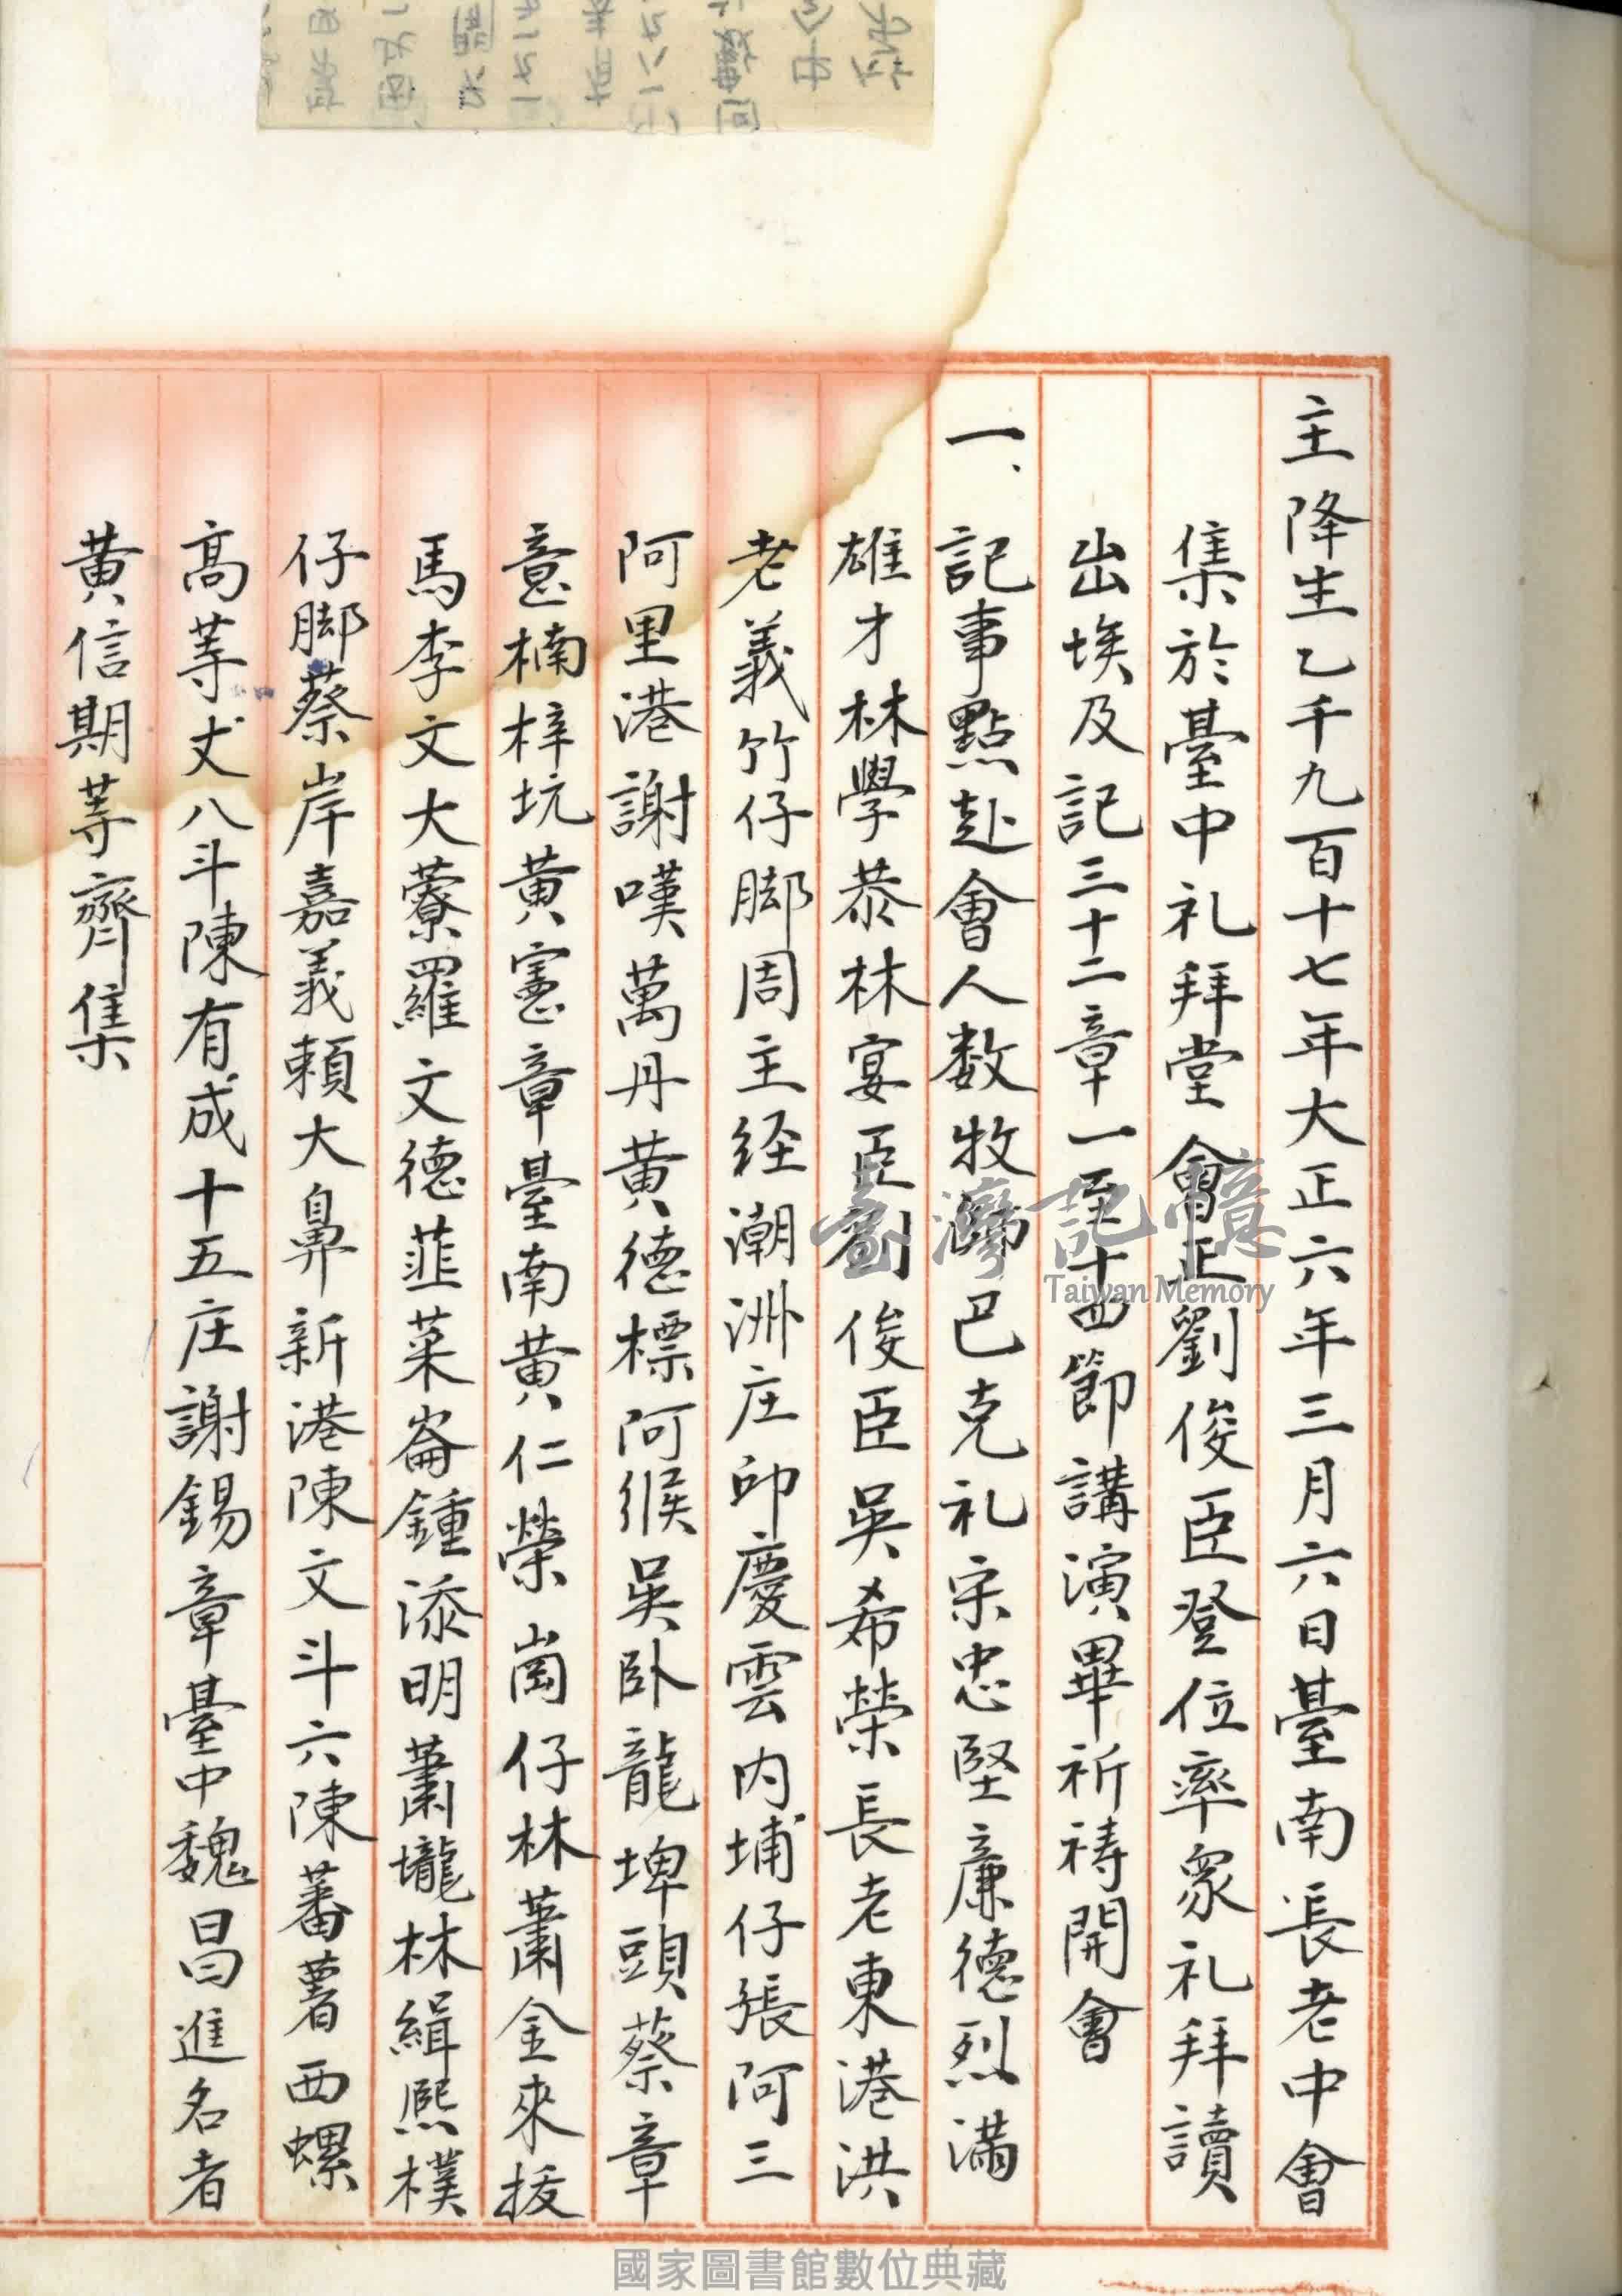 主降生乙千九百十七年大正六年三月六日臺南長老中會
集於臺中礼拜堂會正劉俊臣登位率衆礼拜讀
出埃及記三十二章一至十四節講演畢祈禱開會
一、記事點赴會人数牧師巴克礼宋忠堅廉德烈滿
雄才林學恭林宴臣劉俊臣吳希榮長老東港洪
老義竹仔脚周主経潮洲庄邱慶雲內埔仔張阿三
阿里港謝嘆萬丹黃德標阿猴吳卧龍埤頭蔡章
意楠梓坑黃憲章臺南黃仁榮崗仔林蕭金來拔
馬李文大藔羅文德韮菜崙鍾添明蕭壠林緝熙樸
仔脚蔡岸嘉義頼大鼻新港陳文斗六陳蕃薯西螺
高等丈八斗陳有成十五庄謝錫章臺中魏昌進名者
黃信期等齊集
臺灣記憶
Taiwan Memory
國家圖書館數位典藏